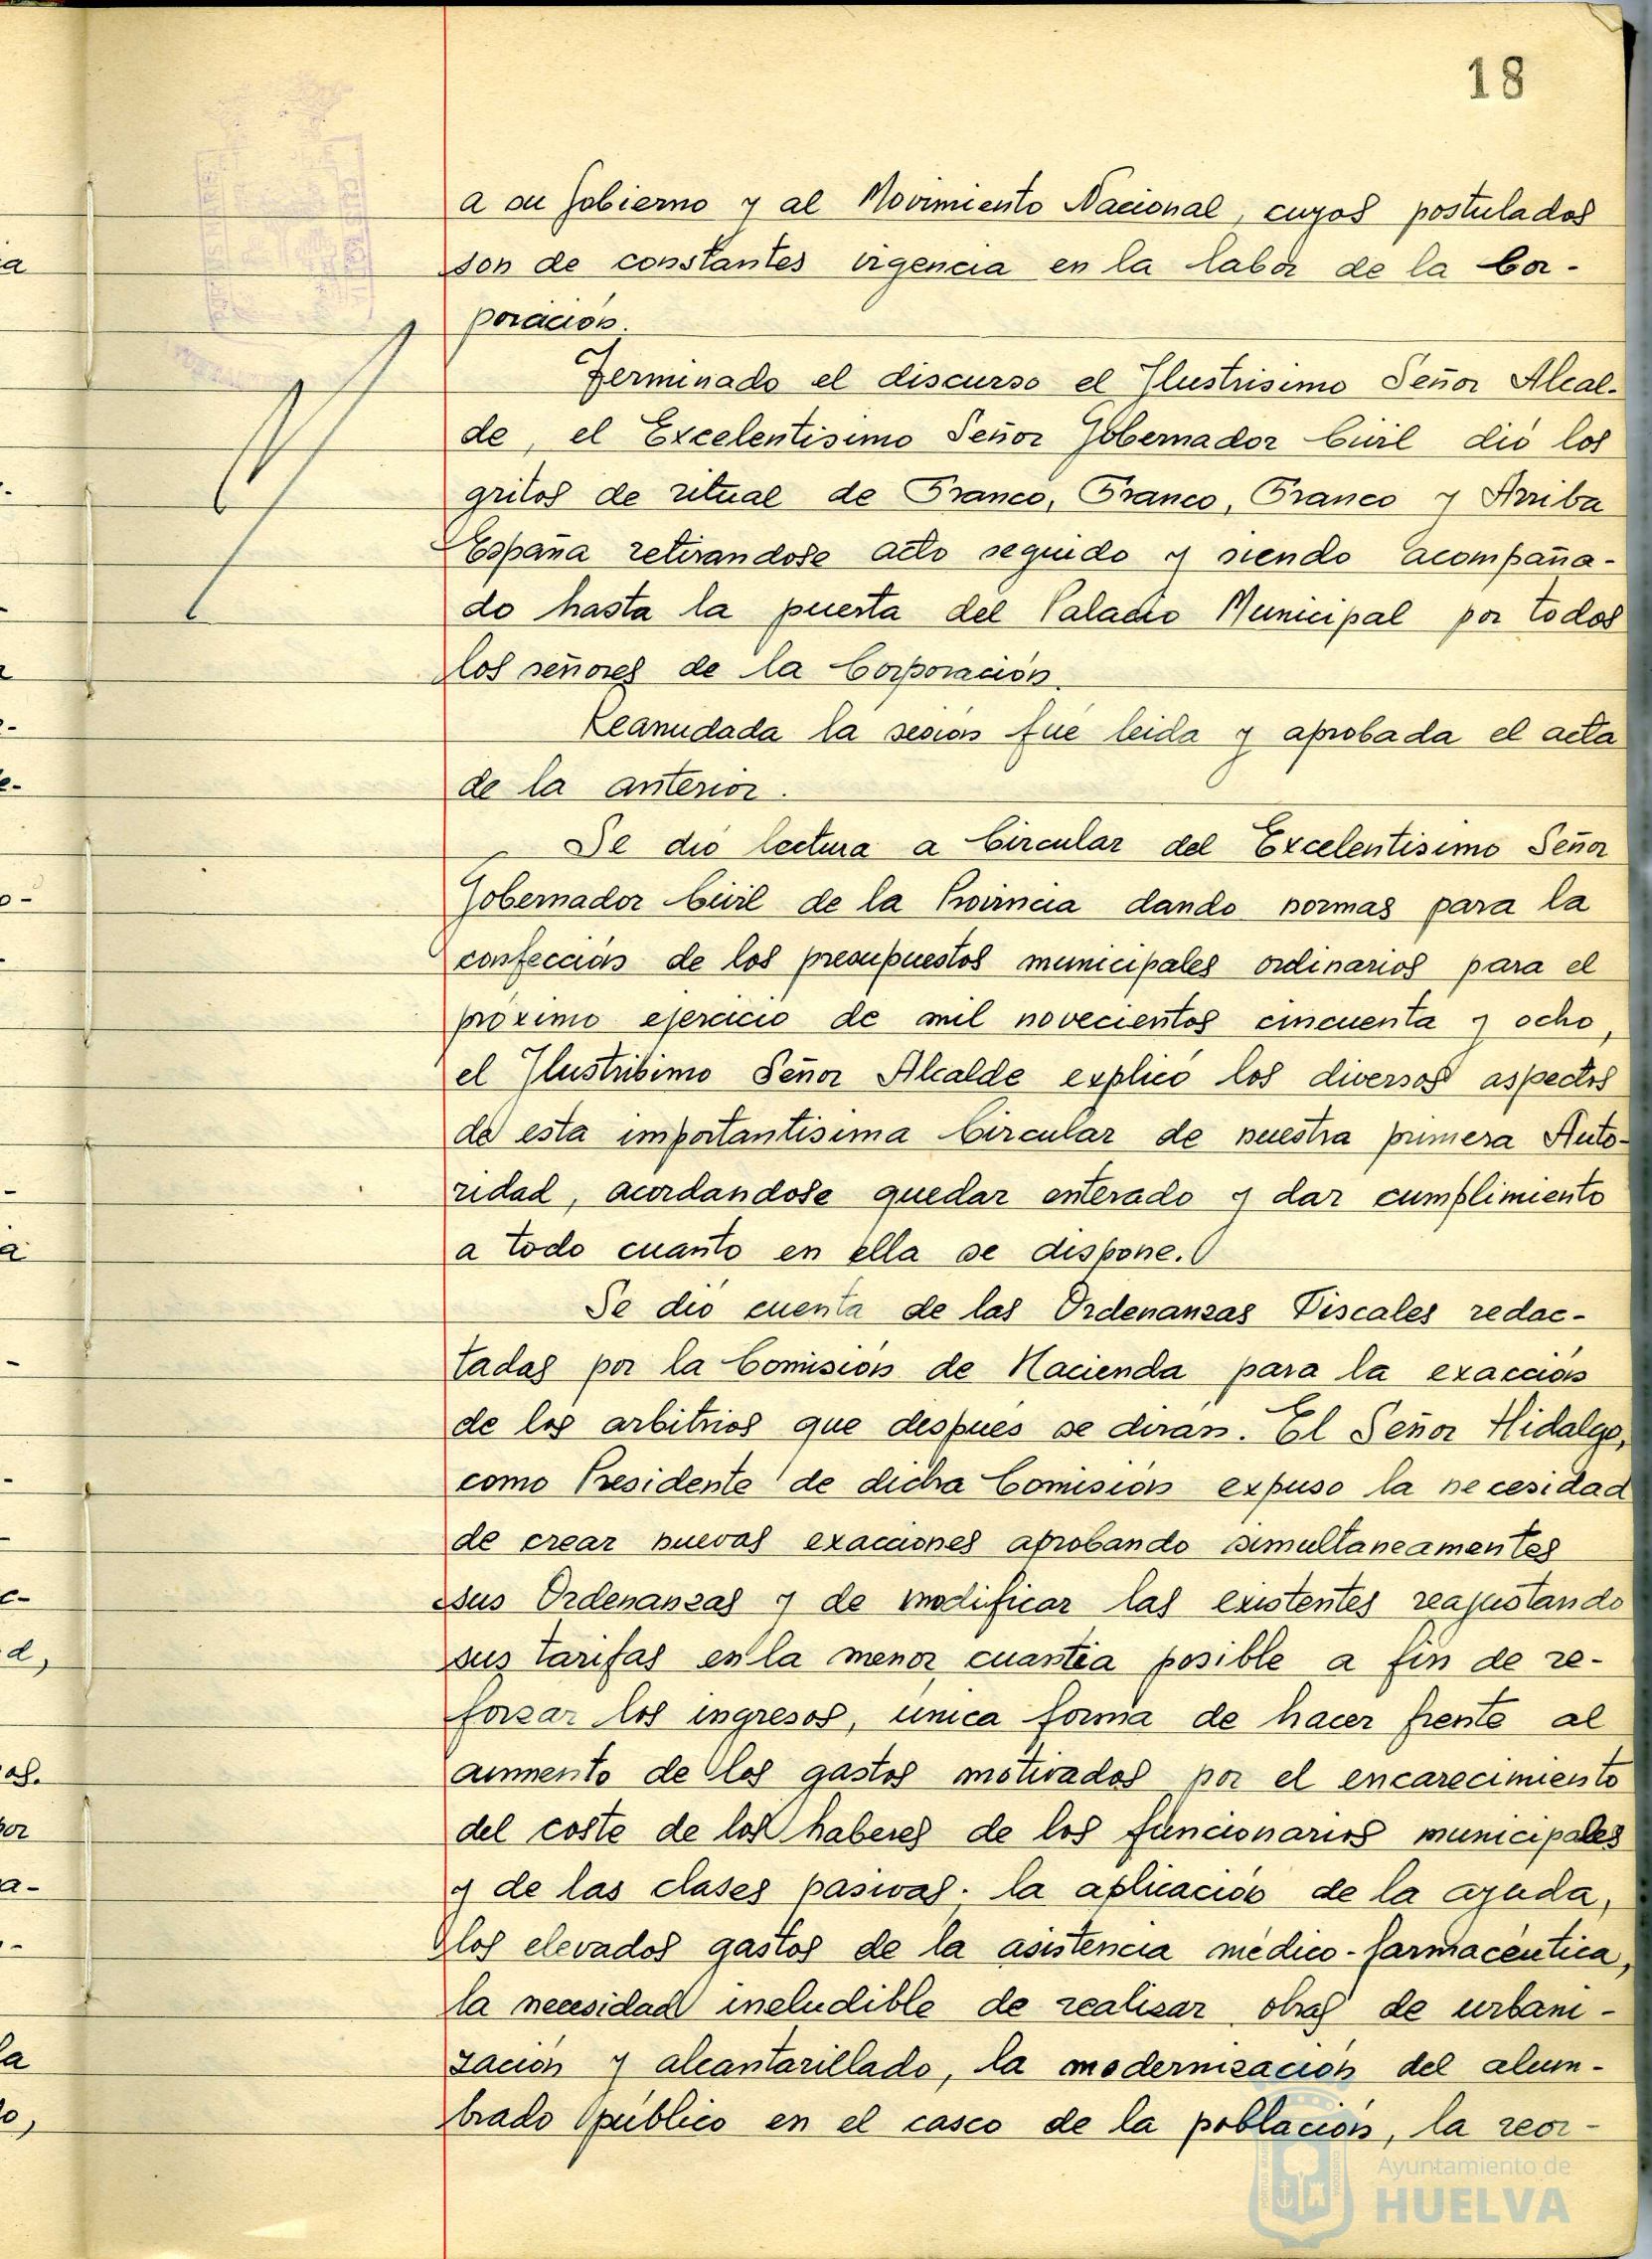 18
a su Gobierno y al Movimiento Nacional, cuyos postulados
son de constantes vigencia en la labor de la Cor-
poración.
Terminado el discurso el Ilustrisimo Señor Alcal-
de, el Excelentisimo Señor Gobernador Civil dió los
gritos de ritual de Franco, Franco, Franco y Arriba
España retirandose acto seguido y siendo acompaña-
do hasta la puerta del Palacio Municipal por todos
los señores de la Corporación.
Reanudada la sesión fué leida y aprobada el acta
de la anterior.
Se dió lectura a Circular del Excelentisimo Señor
Gobernador Civil de la Provincia dando normas para la
confección de los presupuestos municipales ordinarios para el
próximo ejercicio de mil novecientos cincuenta y ocho,
el Ilustrisimo Señor Alcalde explicó los diversos aspectos
de esta importantisima Circular de nuestra primera Auto-
ridad, acordandose quedar enterado y dar cumplimiento
a todo cuanto en ella se dispone.
Se dió cuenta de las Ordenanzas Fiscales redac-
tadas por la Comisión de Hacienda para la exacción
de los arbitrios que despues se dirán. El Señor Hidalgo,
como Presidente de dicha Comisión expuso la necesidad
de crear nuevas exacciones aprobando simultaneamentes
sus Ordenanzas y de modificar las existentes reajustando
sus tarifas en la menor cuantia posible a fin de re-
forzar los ingresos, única forma de hacer frente al
aumento de los gastos motivados por el encarecimiento
del coste de los haberes de los funcionarios municipales
y de las clases pasivas. la aplicación de la ayuda,
los elevados gastos de la asistencia médico-farmacéutica,
la necesidad ineludible de realizar obras de urbani-
zación y alcantarillado, la modernización del alum-
brado público en el casco de la población, la reor-
Ayuntamiento de
HUELVA